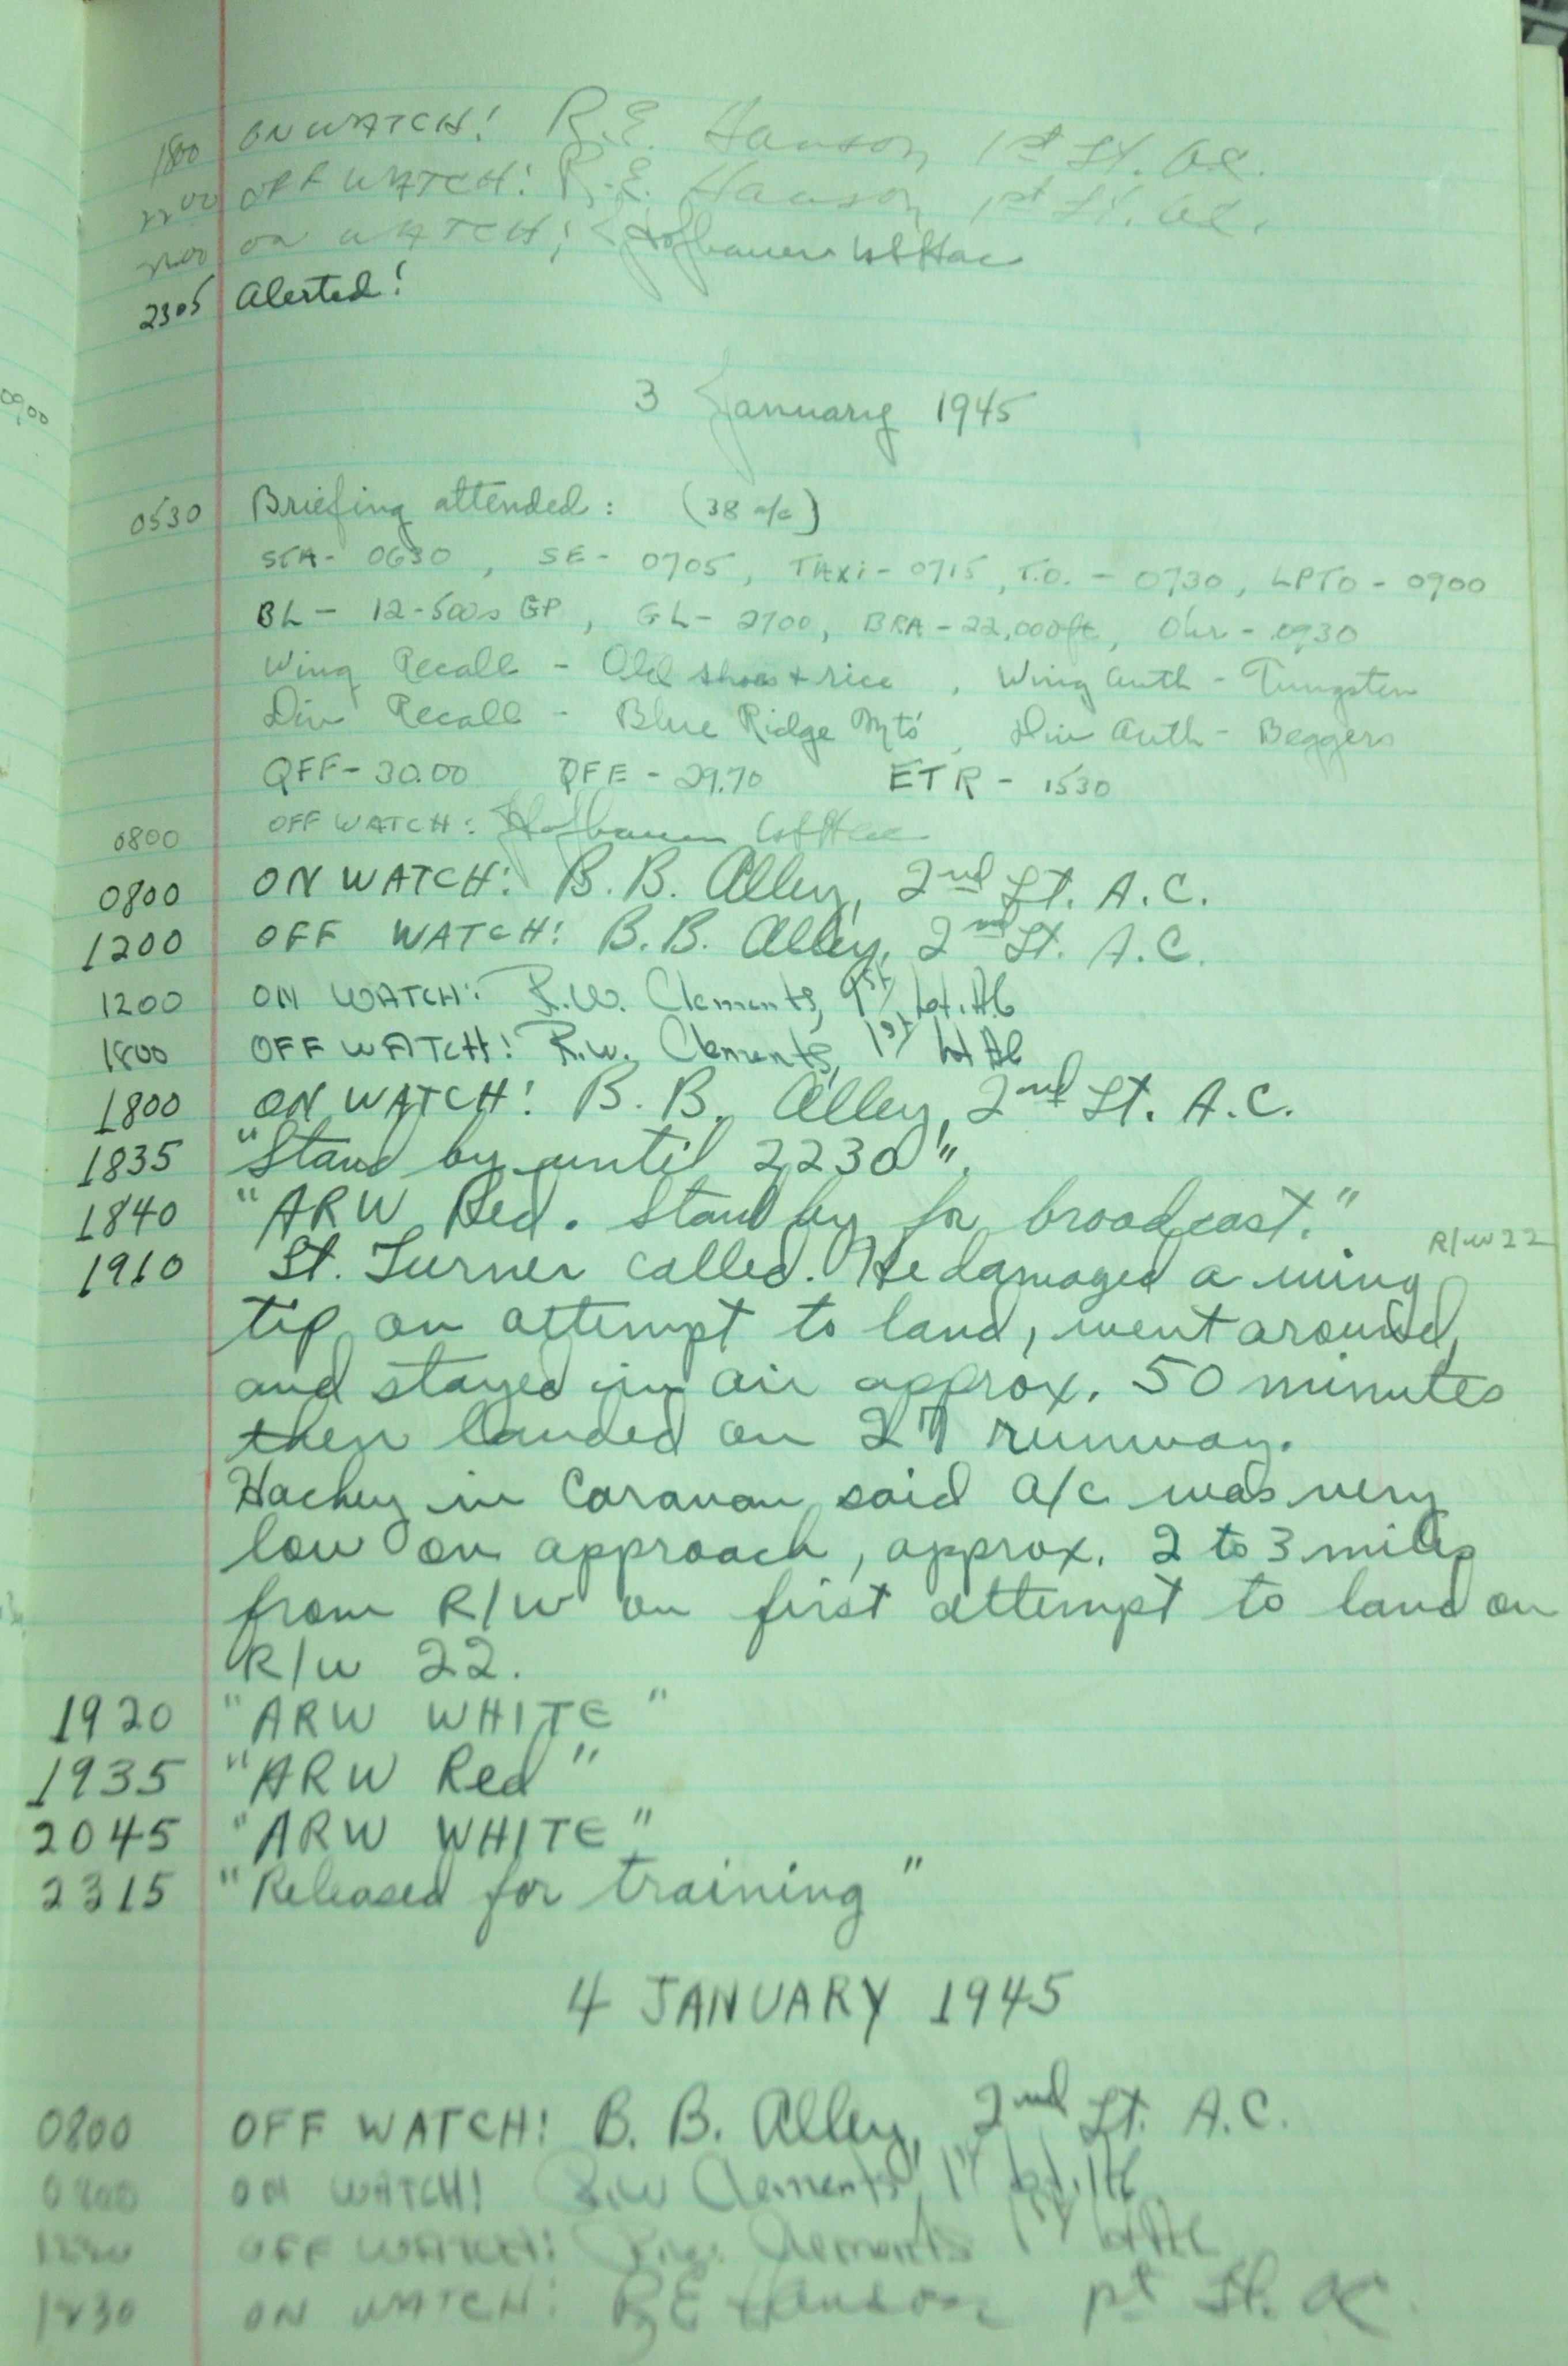 1800 ON WATCH! R.E. Hanson 1st Lt. A.C.
2200 OFF WATCH! R.E. Hanson 1st Lt. A.C.
2200 ON WATCH! Hofbauer 1st Lt AC
2305 Alerted!
3 January 1945
0530 Briefing attended: (38 a/c)
STA- 0630, SE- 0705, TAXi- 0715, T.O. - 0730, LPTO - 0900
BL - 12-500s GP, GL- 2700, BRA - 22,000ft, Ohr - 0930
Wing Recall - Old shoes + rice, Wing Auth - Tungsten
Div Recall - Blue Ridge Mts, Div Auth - Beggers
QFF- 30.00 QFE - 29.70 ETR - 1530
0800 OFF WATCH: Hofbauer 1st Lt AC
0800 ON WATCH! B. B. Alley, 2nd Lt. A.C.
1200 OFF WATCH! B.B. Alley, 2nd Lt. A.C.
1200 ON WATCH! R.W. Clements, 1st Lt. AC
1800 OFF WATCH! R.W. Clements, 1st Lt AC
1800 ON WATCH! B. B. Alley, 2nd Lt. A.C.
1835 "Stand by until 2230".
1840 "ARW Red. Stand by for broadcast."
R/W 22
1910 Lt. Turner called. He damaged a wing
tip on attempt to land, went around,
and stayed in air approx. 50 minutes
then landed on 27 runway.
Hachey in Caravan said a/c was very
low on approach, approx. 2 to 3 miles
from R/W on first attempt to land on
R/W 22.
1920 "ARW WHITE"
1935 "ARW Red"
2045 "ARW WHITE"
2315 "Released for training"
4 JANUARY 1945
0800 OFF WATCH! B. B. Alley, 2nd Lt. A.C.
0800 ON WATCH! R.W Clements, 1st Lt. AC
OFF WATCH! R.W. Clements 1st Lt AC
ON WATCH! R E Hanson 1st Lt. AC.